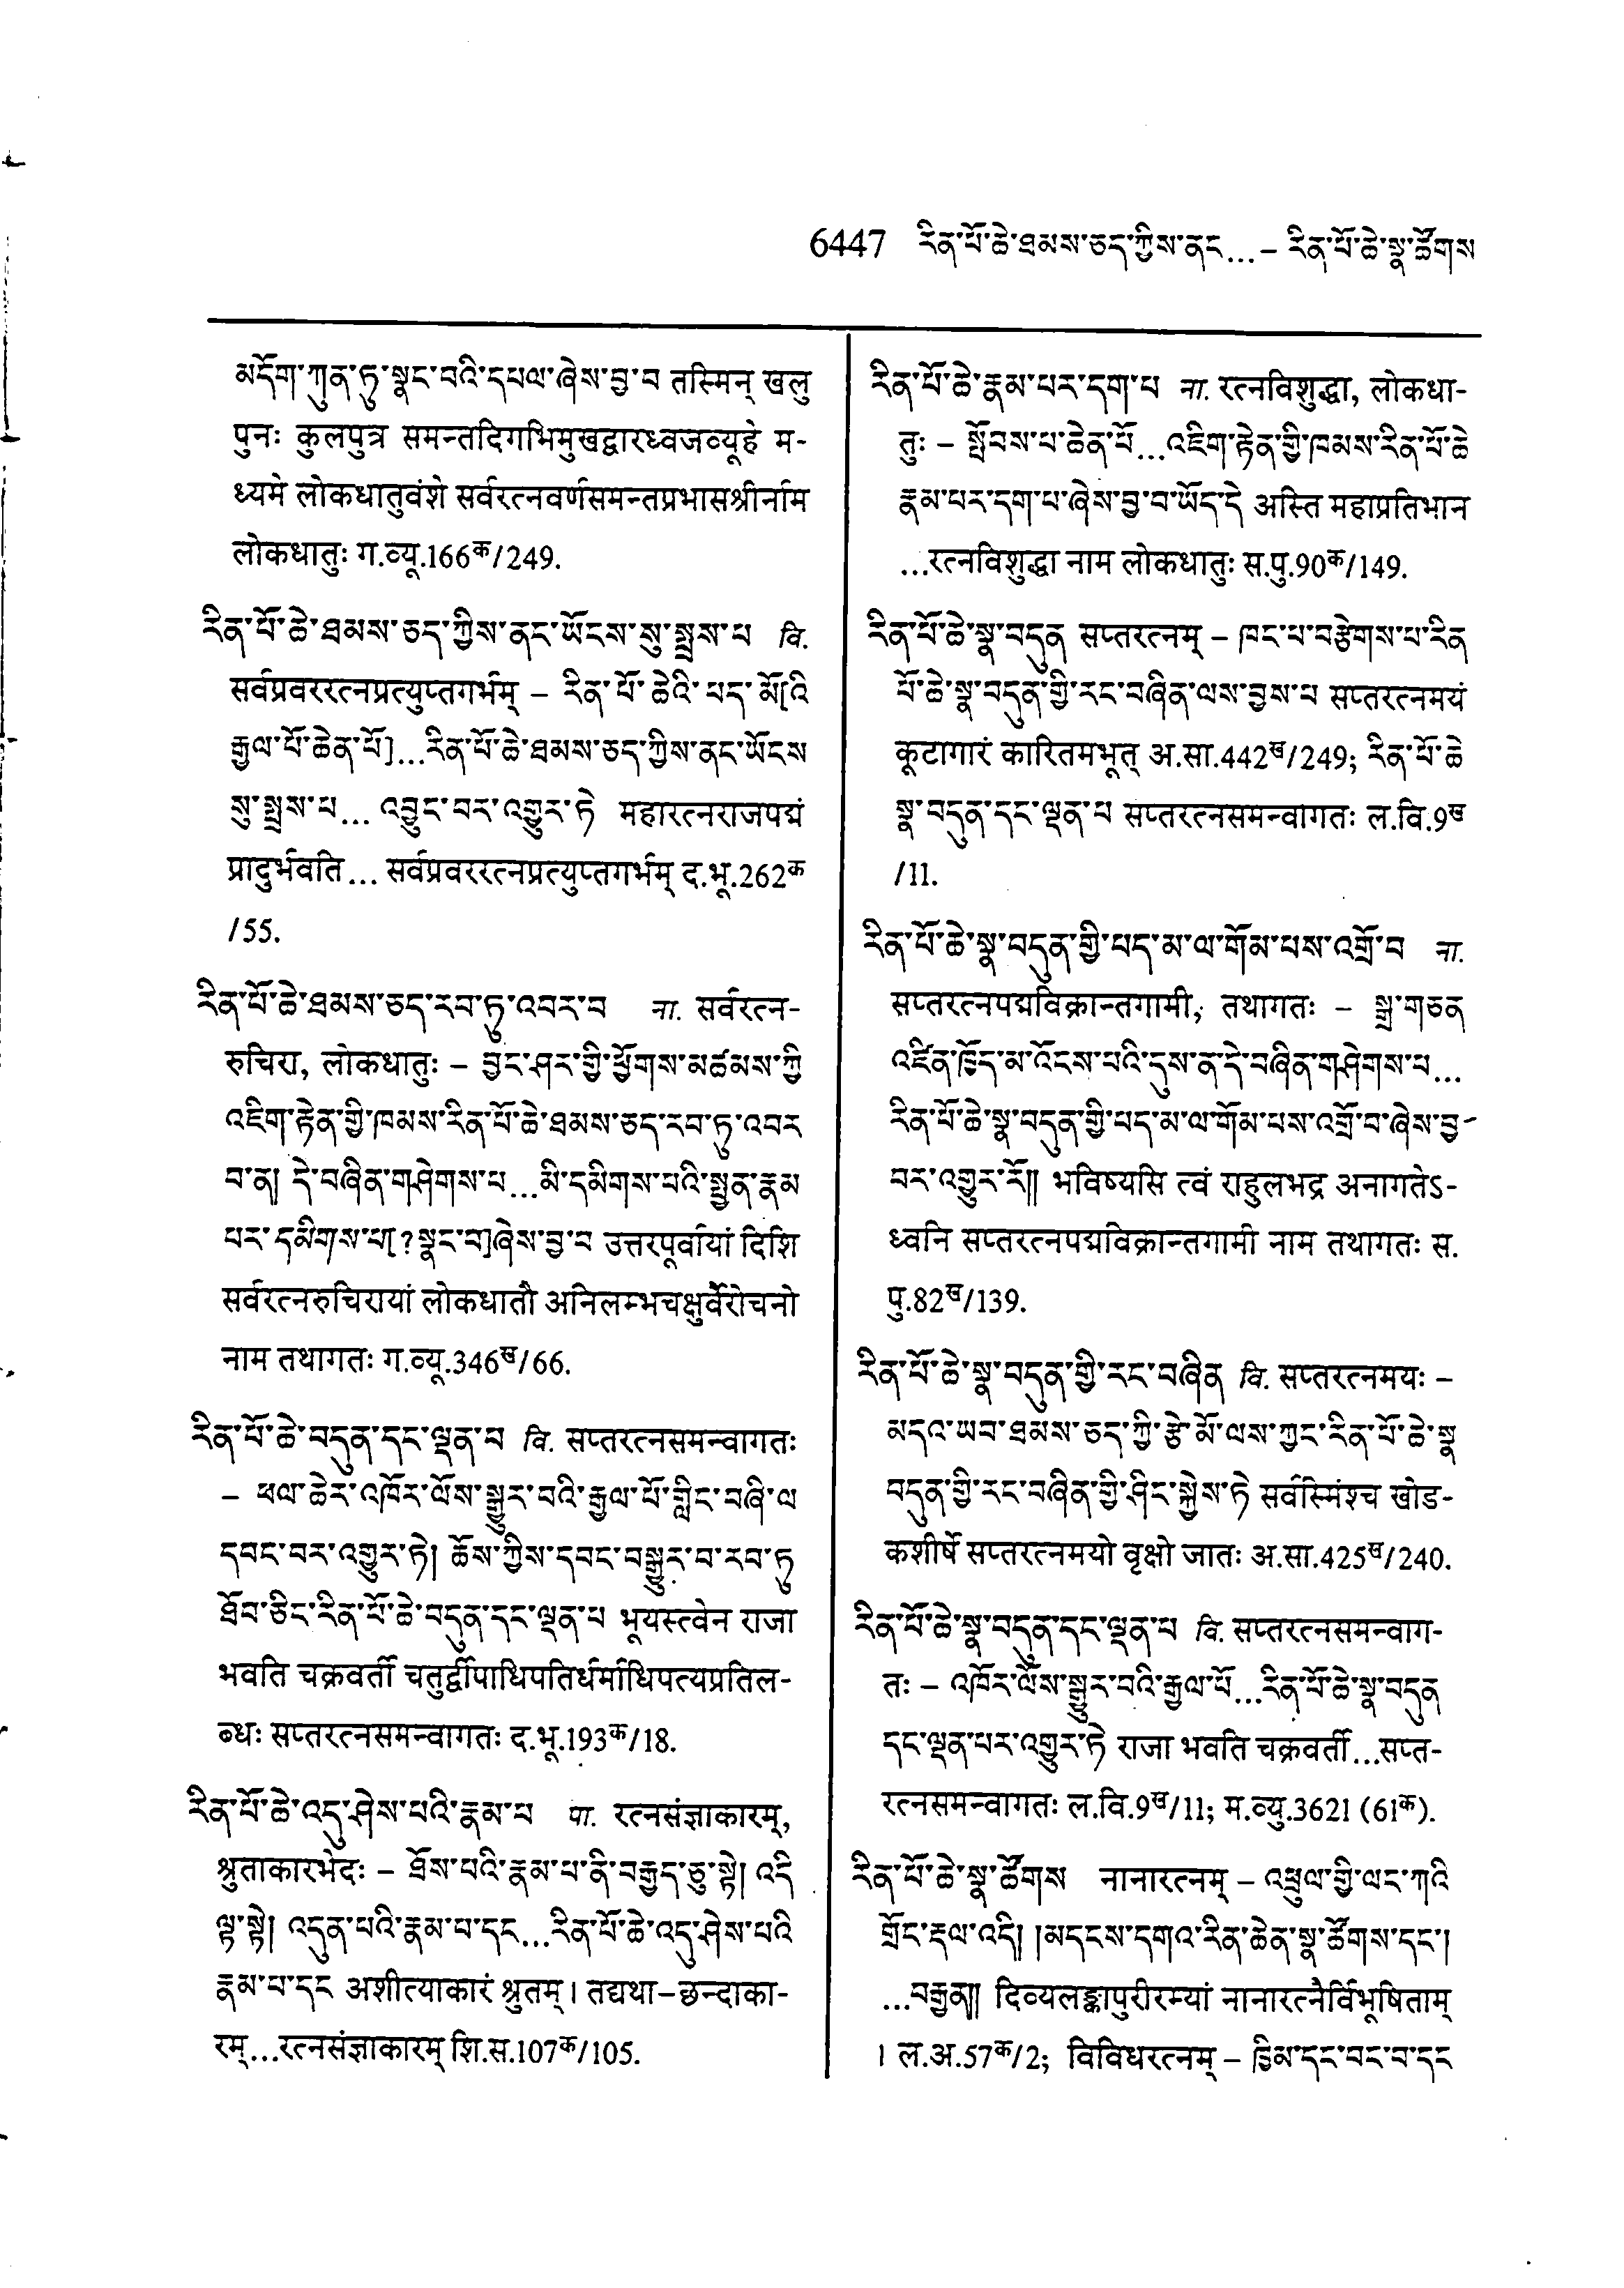 6447 རིན་པོ་ཆེ་ཐམས་ཅད་ཀྱིས་ནང...– རིན་པོ་ཆེ་སྣ་ཚོགས
མདོག་ཀུན་ཏུ་སྣང་བའི་དཔལ་ཞེས་བྱ་བ तस्मिन् खलु
पुनः कुलपुत्र समन्तदिगभिमुखद्वारध्वजव्यूहे म-
ध्यमे लोकधातुवंशे सर्वरत्नवर्णसमन्तप्रभासश्रीर्नाम
लोकधातुः ग.व्यू.166क/249.
རིན་པོ་ཆེ་ཐམས་ཅད་ཀྱིས་ནང་ཡོངས་སུ་སྤྲས་པ वि.
सर्वप्रवररत्नप्रत्युप्तगर्भम् – རིན་པོ་ཆེའི་པད་མོ[འི
རྒྱལ་པོ་ཆེན་པོ]...རིན་པོ་ཆེ་ཐམས་ཅད་ཀྱིས་ནང་ཡོངས
སུ་སྤྲས་པ... འབྱུང་བར་འགྱུར་ཏེ महारत्नराजपद्मं
प्रादुर्भवति... सर्वप्रवररत्नप्रत्युप्तगर्भम् द.भू.262क
/55.
རིན་པོ་ཆེ་ཐམས་ཅད་རབ་ཏུ་འབར་བ ना. सर्वरत्न-
रुचिरा, लोकधातुः – བྱང་ཤར་གྱི་ཕྱོགས་མཚམས་ཀྱི
འཇིག་རྟེན་གྱི་ཁམས་རིན་པོ་ཆེ་ཐམས་ཅད་རབ་ཏུ་འབར
བ་ན། དེ་བཞིན་གཤེགས་པ...མི་དམིགས་པའི་སྤྱན་རྣམ
པར་དམིགས་པ[?སྣང་བ]ཞེས་བྱ་བ उत्तरपूर्वायां दिशि
सर्वरत्नरुचिरायां लोकधातौ अनिलम्भचक्षुर्वैरोचनो
नाम तथागतः ग.व्यू.346ख/66.
རིན་པོ་ཆེ་བདུན་དང་ལྡན་པ वि. सप्तरत्नसमन्वागतः
– ཕལ་ཆེར་འཁོར་ལོས་སྒྱུར་བའི་རྒྱལ་པོ་གླིང་བཞི་ལ
དབང་བར་འགྱུར་ཏེ། ཆོས་ཀྱིས་དབང་བསྒྱུར་བ་རབ་ཏུ
ཐོབ་ཅིང་རིན་པོ་ཆེ་བདུན་དང་ལྡན་པ भूयस्त्वेन राजा
भवति चक्रवर्ती चतुर्द्वीपाधिपतिर्धर्माधिपत्यप्रतिल-
ब्धः सप्तरत्नसमन्वागतः द.भू.193क/18.
རིན་པོ་ཆེ་འདུ་ཤེས་པའི་རྣམ་པ पा. रत्नसंज्ञाकारम्,
श्रुताकारभेदः – ཐོས་པའི་རྣམ་པ་ནི་བརྒྱད་ཅུ་སྟེ། འདི
ལྟ་སྟེ། འདུན་པའི་རྣམ་པ་དང...རིན་པོ་ཆེ་འདུ་ཤེས་པའི
རྣམ་པ་དང अशीत्याकारं श्रुतम्। तद्यथा–छन्दाका-
रम्...रत्नसंज्ञाकारम् शि.स.107क/105.
རིན་པོ་ཆེ་རྣམ་པར་དག་པ ना. रत्नविशुद्धा, लोकधा-
तुः – སྤོབས་པ་ཆེན་པོ...འཇིག་རྟེན་གྱི་ཁམས་རིན་པོ་ཆེ
རྣམ་པར་དག་པ་ཞེས་བྱ་བ་ཡོད་དེ अस्ति महाप्रतिभान
...रत्नविशुद्धा नाम लोकधातुः स.पु.90क/149.
རིན་པོ་ཆེ་སྣ་བདུན सप्तरत्नम् – ཁང་པ་བརྩེགས་པ་རིན
པོ་ཆེ་སྣ་བདུན་གྱི་རང་བཞིན་ལས་བྱས་པ सप्तरत्नमयं
कूटागारं कारितमभूत् अ.सा.442ख/249; རིན་པོ་ཆེ
སྣ་བདུན་དང་ལྡན་པ सप्तरत्नसमन्वागतः ल.वि.9ख
/11.
རིན་པོ་ཆེ་སྣ་བདུན་གྱི་པད་མ་ལ་གོམ་པས་འགྲོ་བ ना.
सप्तरत्नपद्मविक्रान्तगामी, तथागतः – སྒྲ་གཅན
འཛིན་ཁྱོད་མ་འོངས་པའི་དུས་ན་དེ་བཞིན་གཤེགས་པ...
རིན་པོ་ཆེ་སྣ་བདུན་གྱི་པད་མ་ལ་གོམ་པས་འགྲོ་བ་ཞེས་བྱ་
བར་འགྱུར་རོ།། भविष्यसि त्वं राहुलभद्र अनागतेऽ-
ध्वनि सप्तरत्नपद्मविक्रान्तगामी नाम तथागतः स.
पु.82ख/139.
རིན་པོ་ཆེ་སྣ་བདུན་གྱི་རང་བཞིན वि. सप्तरत्नमयः –
མདའ་ཡབ་ཐམས་ཅད་ཀྱི་རྩེ་མོ་ལས་ཀྱང་རིན་པོ་ཆེ་སྣ
བདུན་གྱི་རང་བཞིན་གྱི་ཤིང་སྐྱེས་ཏེ सर्वस्मिंश्च खोड-
कशीर्षे सप्तरत्नमयो वृक्षो जातः अ.सा.425ख/240.
རིན་པོ་ཆེ་སྣ་བདུན་དང་ལྡན་པ वि. सप्तरत्नसमन्वाग-
तः – འཁོར་ལོས་སྒྱུར་བའི་རྒྱལ་པོ...རིན་པོ་ཆེ་སྣ་བདུན
དང་ལྡན་པར་འགྱུར་ཏེ राजा भवति चक्रवर्ती...सप्त-
रत्नसमन्वागतः ल.वि.9ख/11; म.व्यु.3621 (61क).
རིན་པོ་ཆེ་སྣ་ཚོགས नानारत्नम् – འཕྲུལ་གྱི་ལང་ཀའི
གྲོང་རྡལ་འདི། །མདངས་དགའ་རིན་ཆེན་སྣ་ཚོགས་དང་།
...བརྒྱན།། दिव्यलङ्कापुरीरम्यां नानारत्नैर्विभूषिताम्
। ल.अ.57क/2; विविधरत्नम् – ཁྱིམ་དང་བང་བ་དང